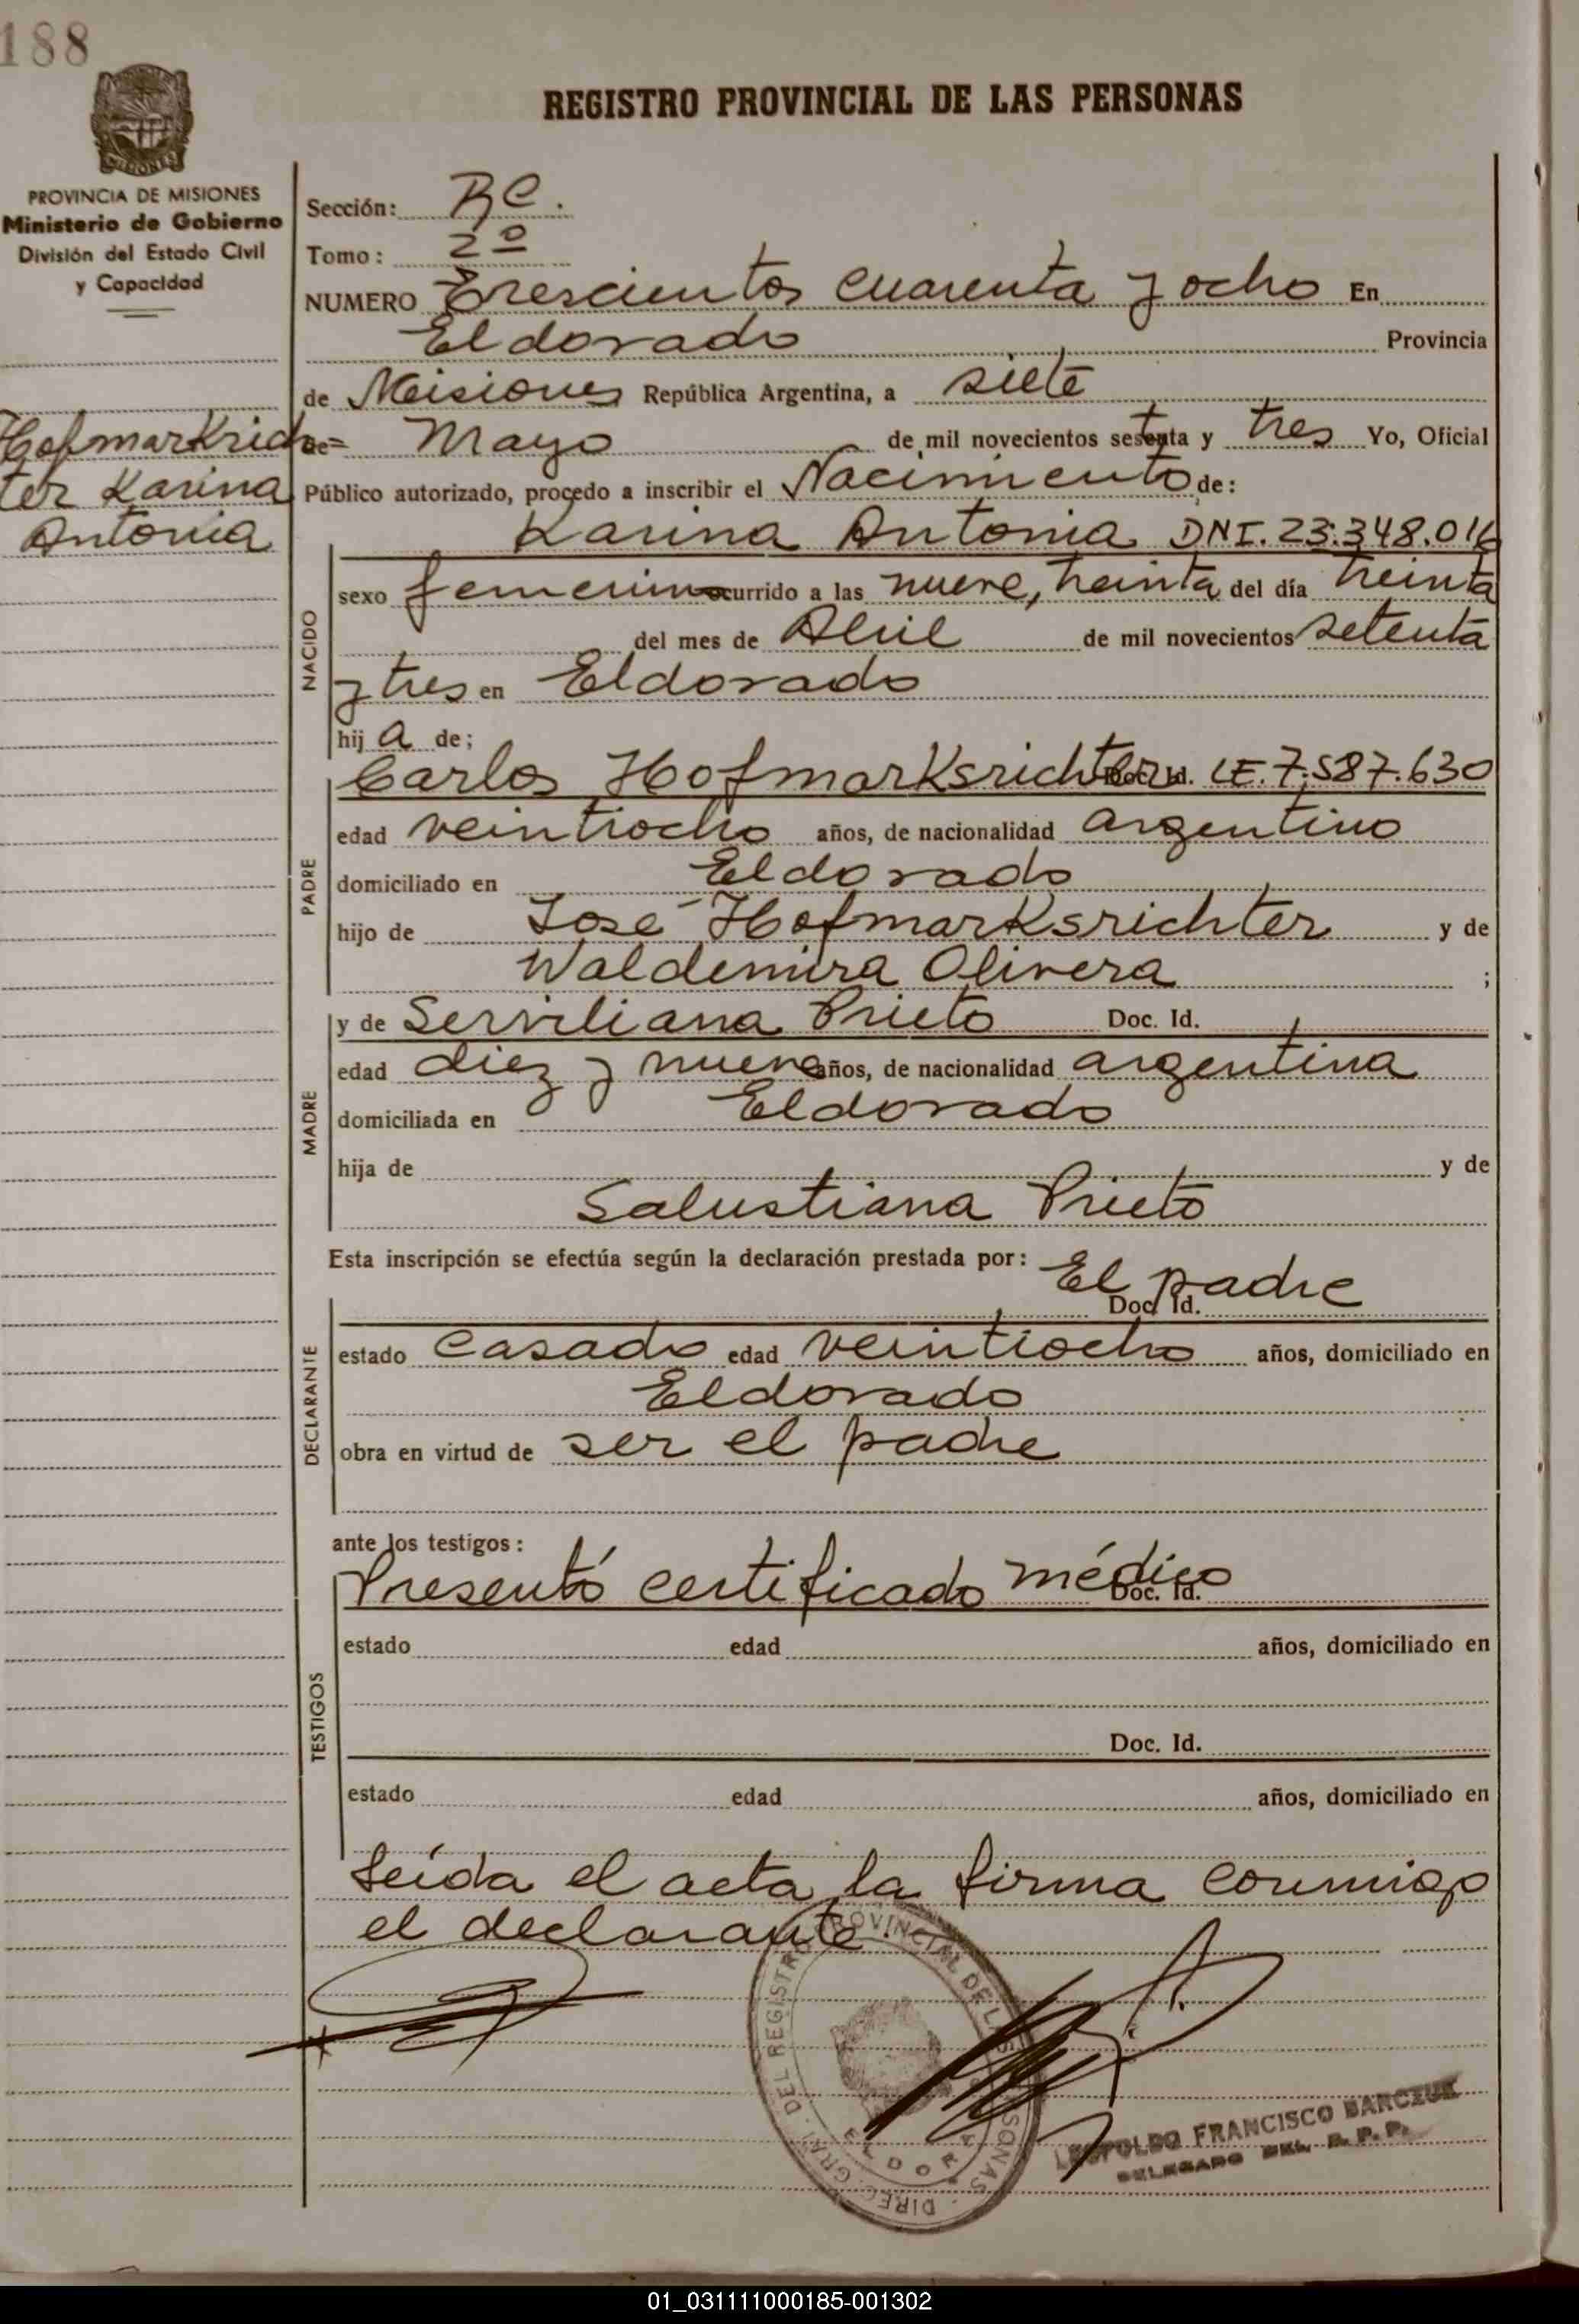 188
REGISTRO PROVINCIAL DE LAS PERSONAS
MISIONES
PROVINCIA DE MISIONES
Ministerio de Gobierno
División del Estado Civil
y Capacidad
Hofmarkrich=
ter Karina
Antonia
Sección: RC.
Tomo: 2º
NUMERO Trescientos cuarenta y ocho En
Eldorado Provincia
de Misiones República Argentina, a siete
de Mayo de mil novecientos setenta y tres Yo, Oficial
Público autorizado, procedo a inscribir el Nacimiento de:
Karina Antonia DNI. 23.348.016
NACIDO
sexo femenino ocurrido a las nueve, treinta del día treinta
del mes de Abril de mil novecientos setenta
y tres en Eldorado
hij a de;
Carlos Hofmarksrichter Doc. Id. LE. 7.587.630
PADRE
edad veintiocho años, de nacionalidad argentino
domiciliado en Eldorado
hijo de José Hofmarksrichter y de
Waldemira Olivera ;
y de Serviliana Prieto Doc. Id.
MADRE
edad diez y nueve años, de nacionalidad argentina
domiciliada en Eldorado
hija de y de
Salustiana Prieto
Esta inscripción se efectúa según la declaración prestada por: El padre
Doc. Id.
DECLARANTE
estado casado edad veintiocho años, domiciliado en
Eldorado
obra en virtud de ser el padre
ante los testigos:
Presentó certificado médico Doc. Id.
TESTIGOS
estado edad años, domiciliado en
Doc. Id.
estado edad años, domiciliado en
Leída el acta la firma conmigo
el declarante.
DIREC. GRAL. DEL REGISTRO PROVINCIAL DE LAS PERSONAS
LEOPOLDO FRANCISCO BARCZUK
DELEGADO DEL R. P. P.
01_031111000185-001302